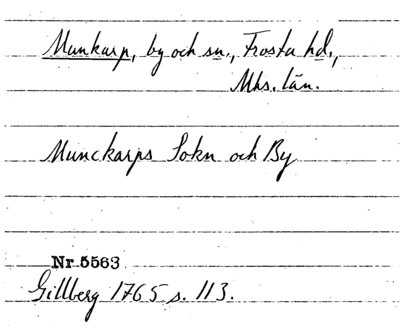 Munkarp, by och sn., Frosta hd.,
Mhs. län.
Munckarps Sokn och By
Nr 5563
Gillberg 1765 s. 113.